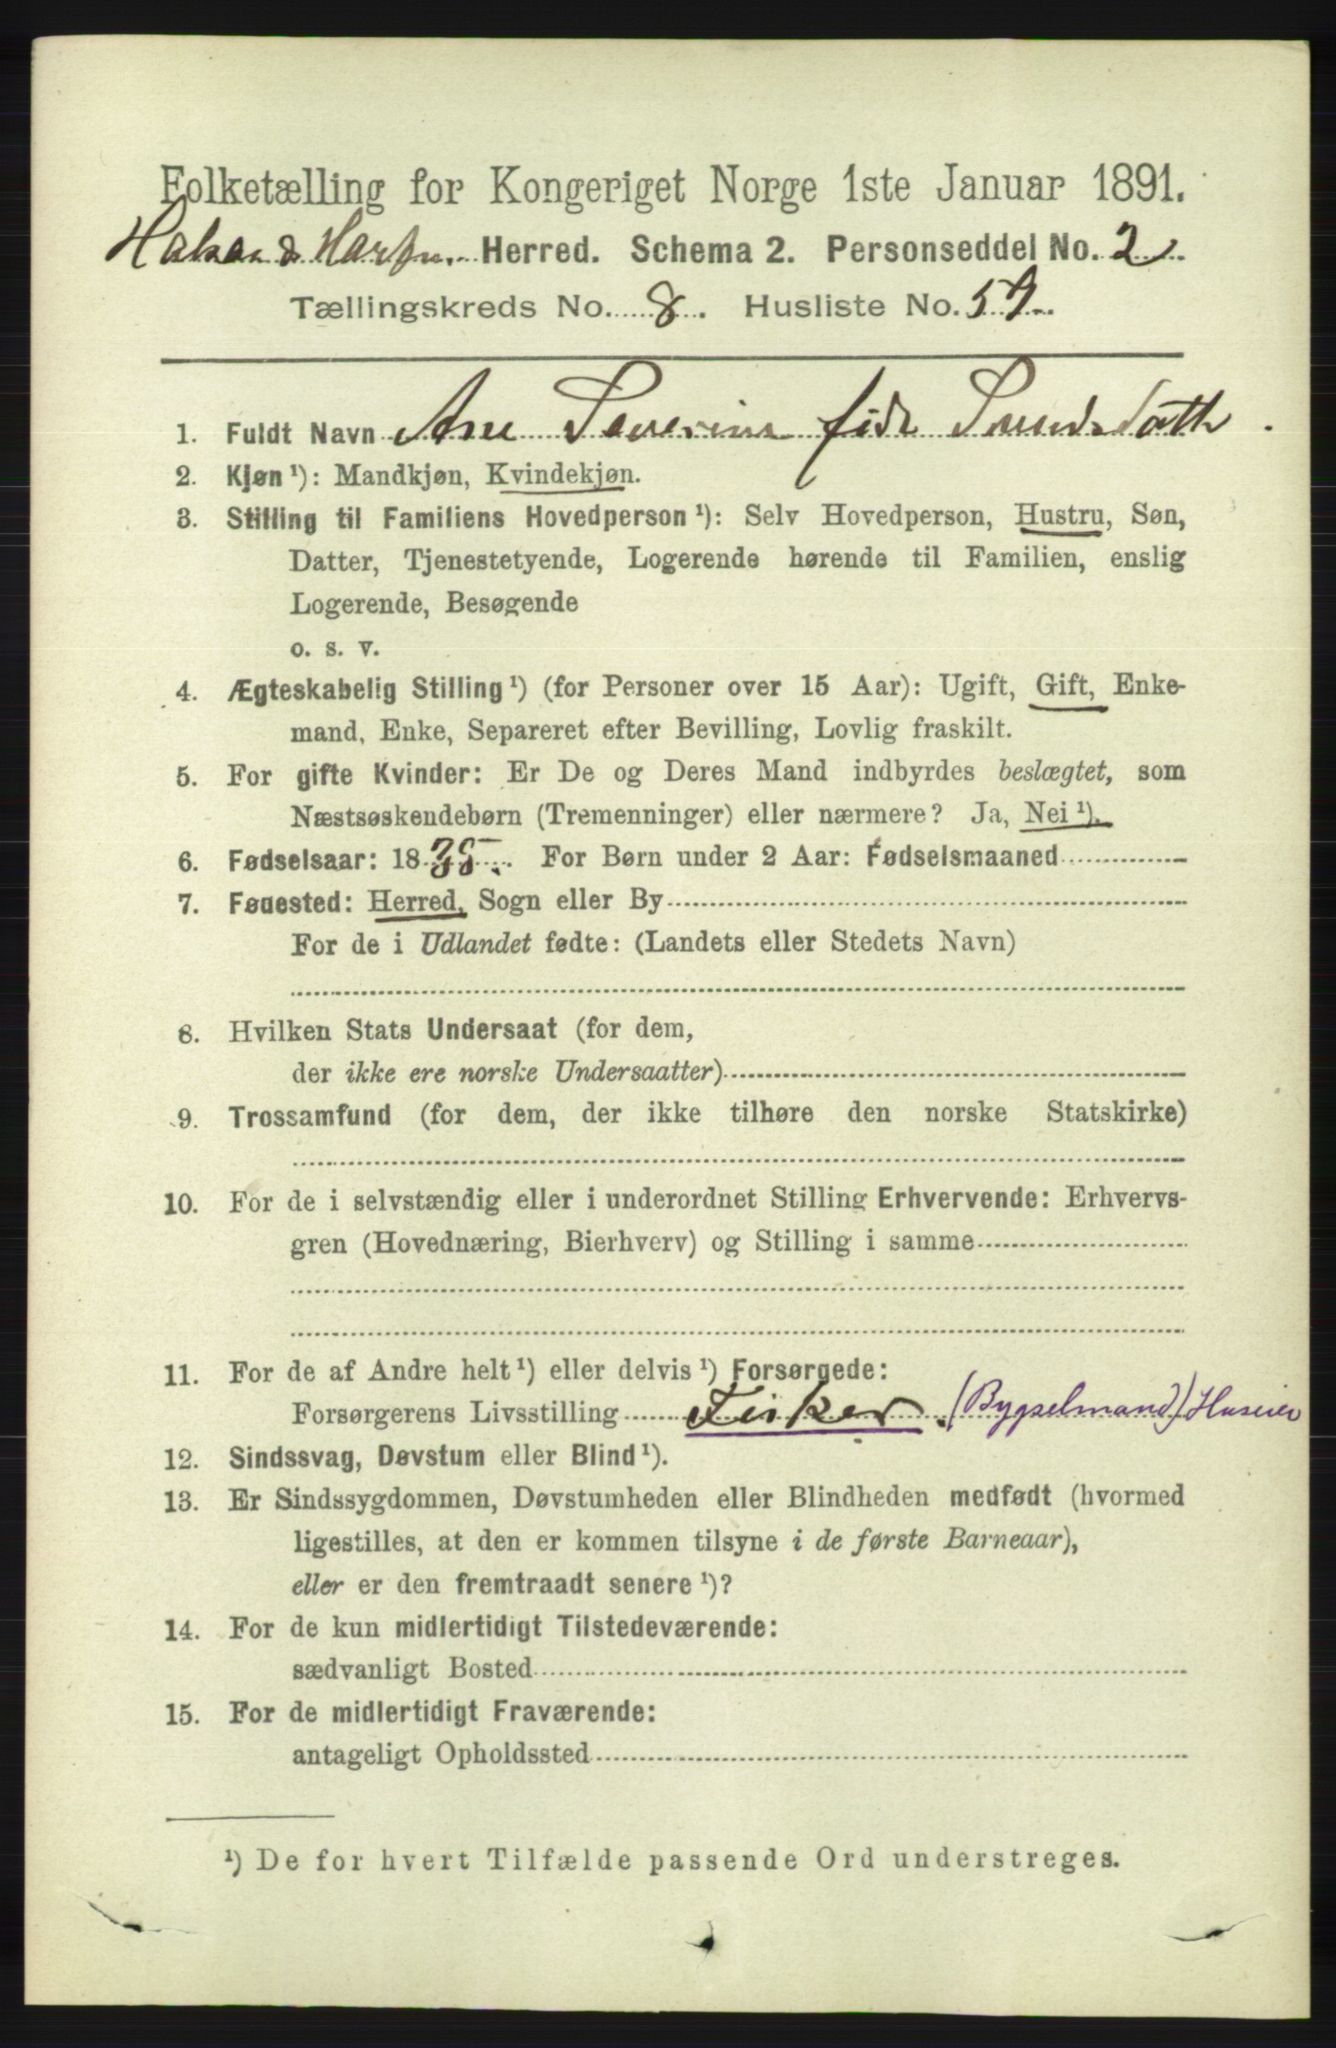 Folketælling for Kongeriget Norge 1ste Januar 1891.
Herred. Schema 2. Personseddel No. 2
Tællingskreds No. 8. Husliste No. 59
1. Fuldt Navn Ane Severine
2. Kjøn ¹): Mandkjøn, Kvindekjøn.
3. Stilling til Familiens Hovedperson ¹): Selv Hovedperson, Hustru, Søn,
Datter, Tjenestetyende, Logerende hørende til Familien, enslig
Logerende, Besøgende
o. s. v.
4. Ægteskabelig Stilling ¹) (for Personer over 15 Aar): Ugift, Gift, Enke-
mand, Enke, Separeret efter Bevilling, Lovlig fraskilt.
5. For gifte Kvinder: Er De og Deres Mand indbyrdes beslægtet, som
Næstsøskendebørn (Tremenninger) eller nærmere? Ja, Nei ¹).
6. Fødselsaar: 1835. For Børn under 2 Aar: Fødselsmaaned
7. Fødested: Herred, Sogn eller By
For de i Udlandet fødte: (Landets eller Stedets Navn)
8. Hvilken Stats Undersaat (for dem,
der ikke ere norske Undersaatter)
9. Trossamfund (for dem, der ikke tilhøre den norske Statskirke)
10. For de i selvstændig eller i underordnet Stilling Erhvervende: Erhvervs-
gren (Hovednæring, Bierhverv) og Stilling i samme
11. For de af Andre helt ¹) eller delvis ¹) Forsørgede:
Forsørgerens Livsstilling Fisker. (Bygselmand) Huseier
12. Sindssvag, Døvstum eller Blind ¹).
13. Er Sindssygdommen, Døvstumheden eller Blindheden medfødt (hvormed
ligestilles, at den er kommen tilsyne i de første Barneaar),
eller er den fremtraadt senere ¹)?
14. For de kun midlertidigt Tilstedeværende:
sædvanligt Bosted
15. For de midlertidigt Fraværende:
antageligt Opholdssted
¹) De for hvert Tilfælde passende Ord understreges.